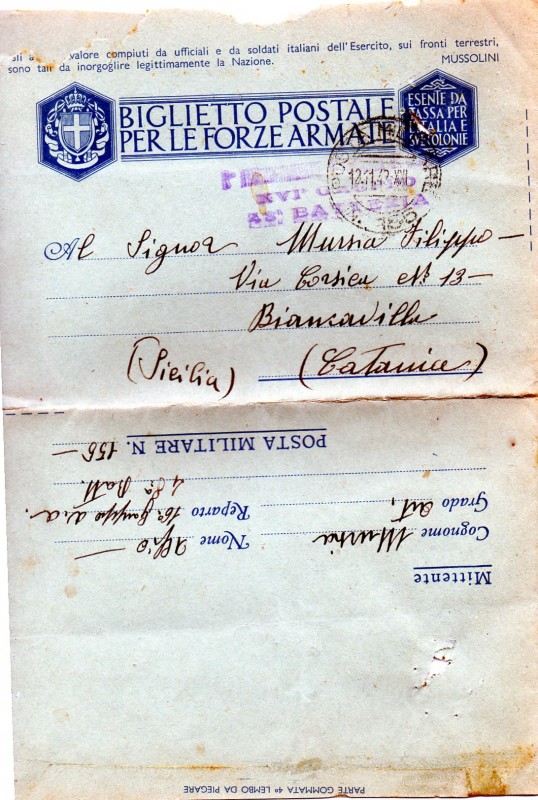 valore compiuti da ufficiali e da soldati italiani dell'Esercito, sui fronti terrestri,
sono tali da inorgoglire legittimamente la Nazione.
MUSSOLINI
BIGLIETTO POSTALE
PER LE FORZE ARMATE
ESENTE DA
TASSA PER
ITALIA E
SUE COLONIE
12.11.42.XXI
XVI°
BATTERIA
Al Signor Mursia Filippo
Via Corsica N° 13
Biancavilla
(Sicilia) (Catania)
Mittente
Cognome Mursia Nome Alfio
Grado Art. Reparto 16° gruppo
Batt.
POSTA MILITARE N. 156
PARTE GOMMATA 4° LEMBO DA PIEGARE